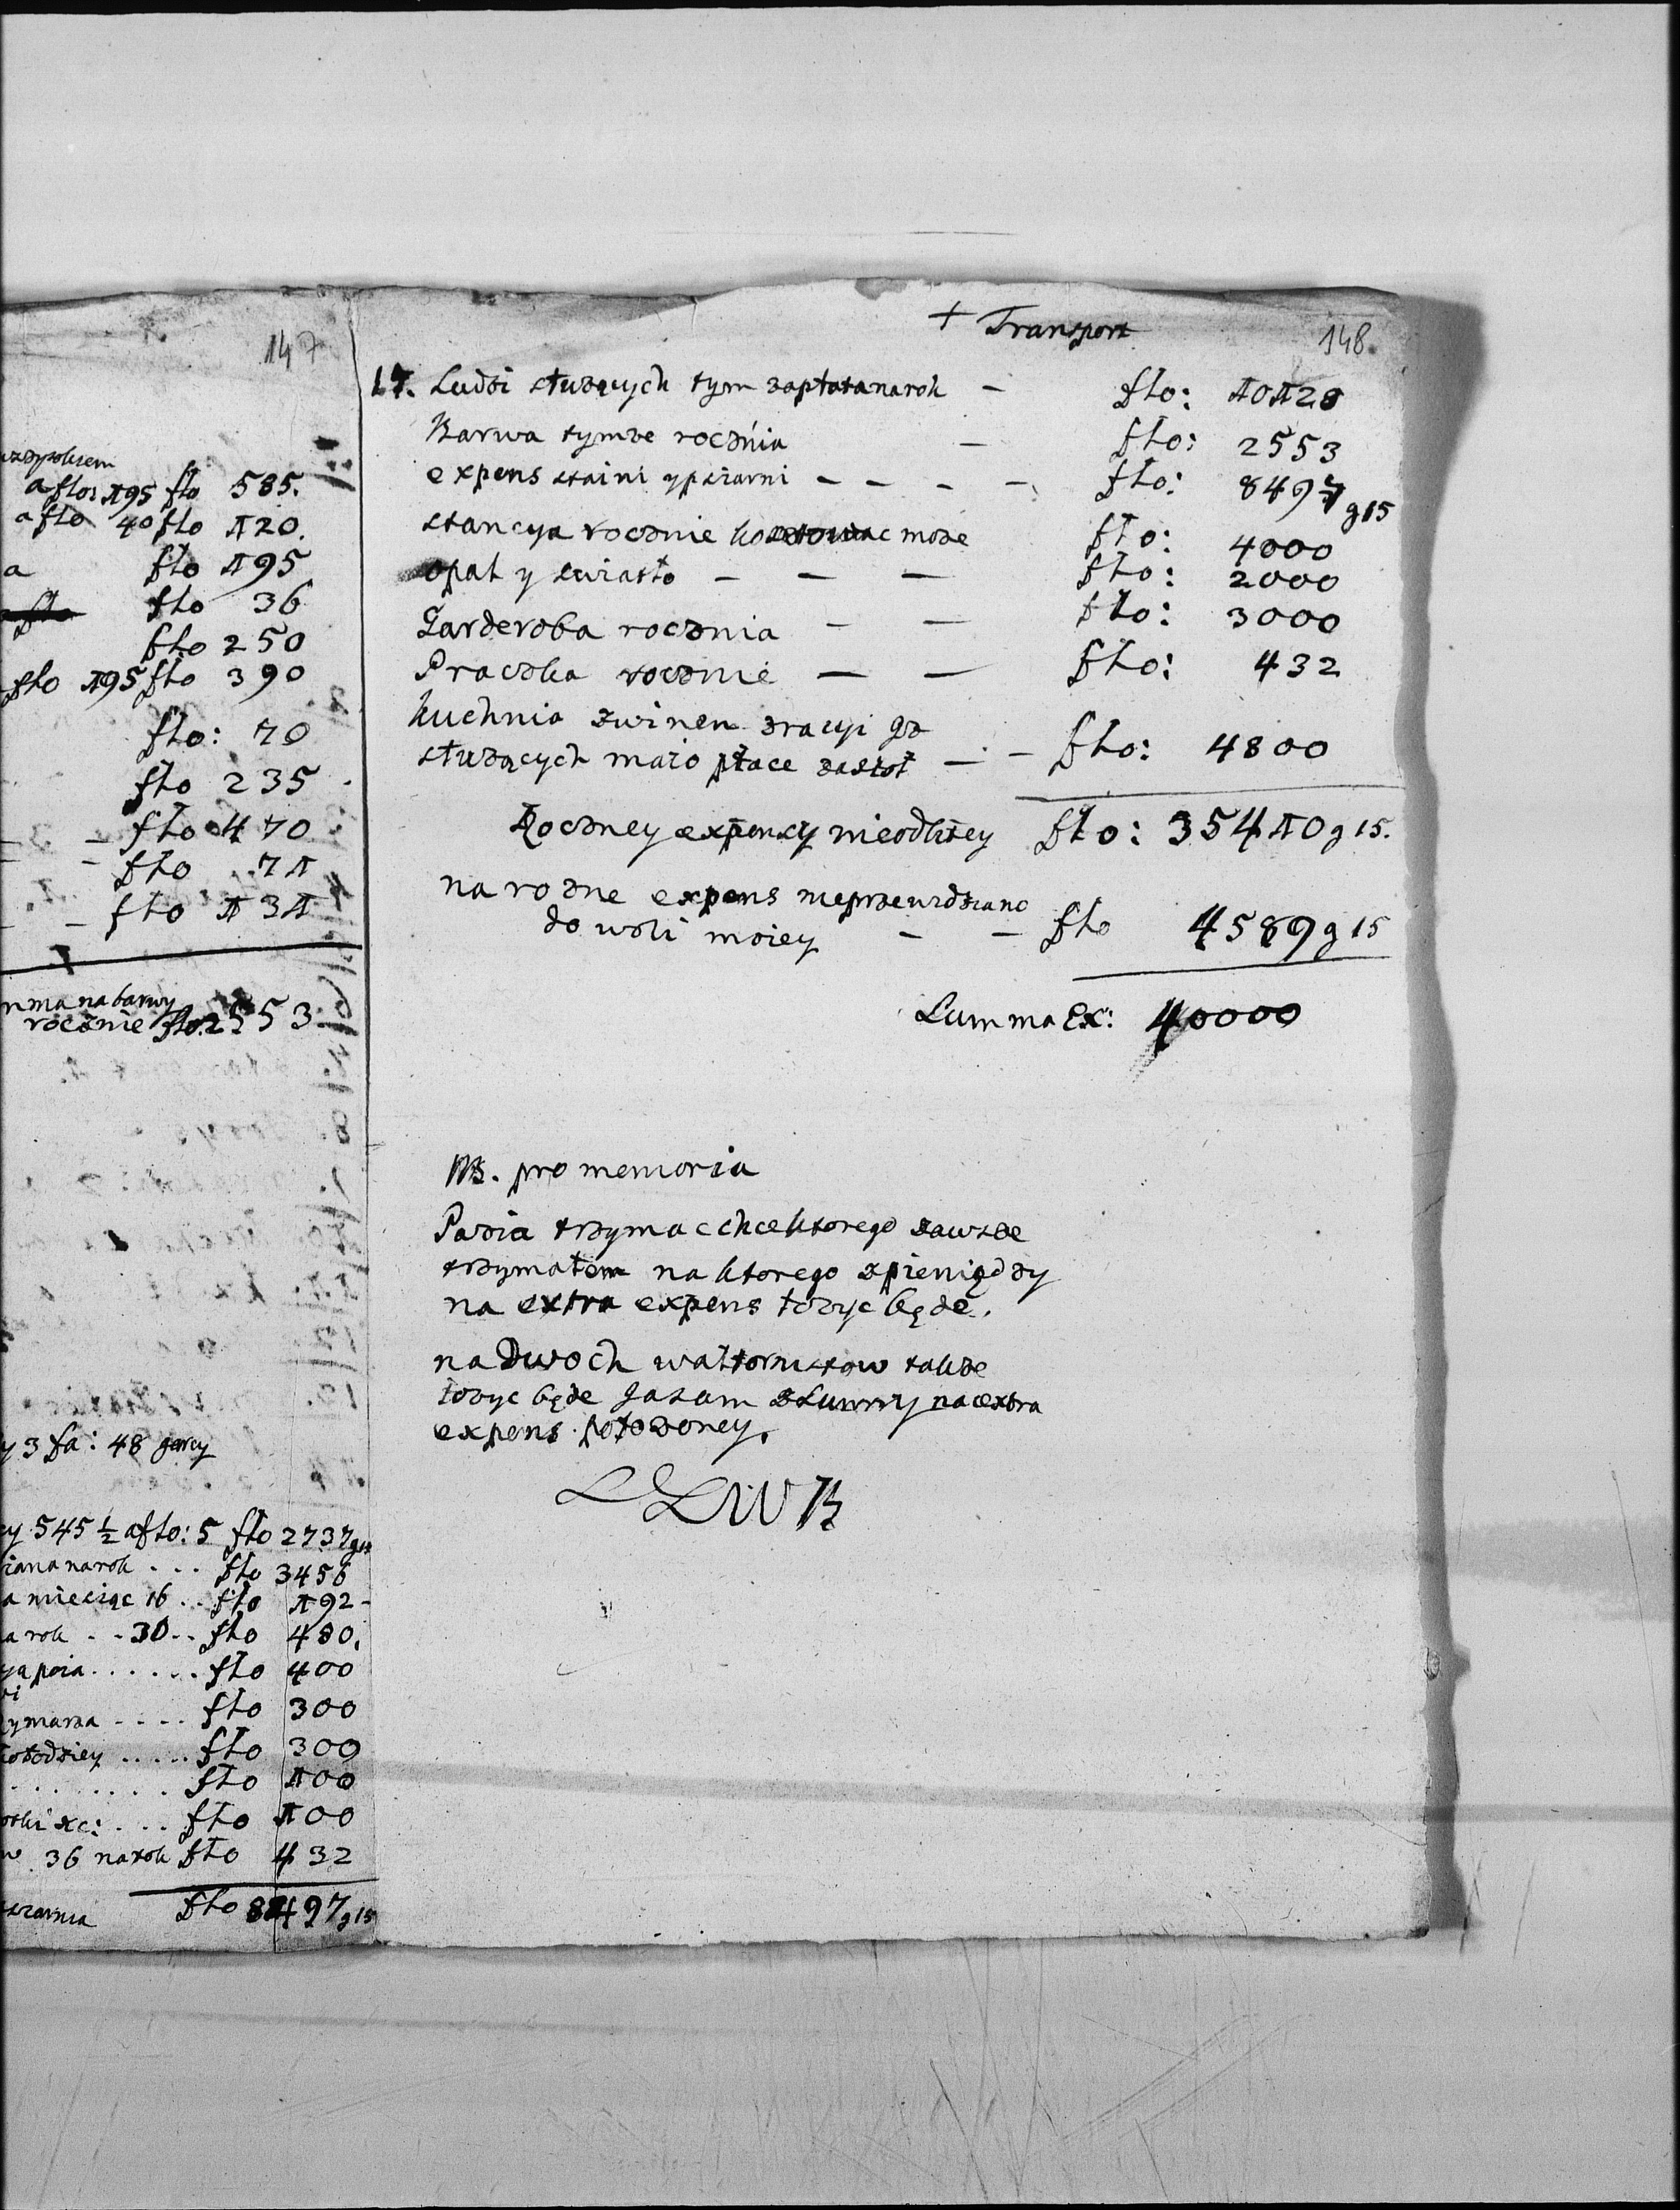 147
a flo: 195 flo 585.
a flo 40 flo 120.
a flo 195
flo 36
flo 250
flo 195 flo 390
flo: 70
flo 235
flo 470
flo 71
flo 131
ma na barwy
rocznie flo. 2553
y 3 fa: 48 garcy
cy 545 ½ a flo: 5 flo 2737 g 15
na rok . . . flo 3456
a miesiąc 16 . . flo 192 -
a rok . . 30 . . flo 480.
flo 400
ymarza . . . . flo 300
kołodziey . . . . . flo 300
. . . . . . . flo 100
xc: . . . flo 100
36 na rok flo 432
flo 8497 g 15
+ Transport
148
17. Ludzi służących tym zapłata na rok – flo: 10128
Barwa tymze roczńia – flo: 2553
expens stáini y psiarni – – – – flo: 8497 g 15
stancya rocznie kosztowac może flo: 4000
opał y swiatło – – – flo: 2000
Garderoba rocznia – – flo: 3000
Praczka rocznie – – flo: 432
kuchnia z winem z racyi gdz
służących maio płace za stoł – – flo: 4800
Roczney expensy nieodbitey flo: 35410 g 15.
na rozne expens nieprzewidziane
do woli moiey – – flo 4589 g 15
Summa Ex: 40000
NB. pro memoria
Pazia trzymac chce ktorego zawsze
trzymałem na ktorego z pieniędzy
na extra expens łozyc będę.
na Dwoch waltornistow takze
łozyc będe ja sam z summy na extra
expens położoney.